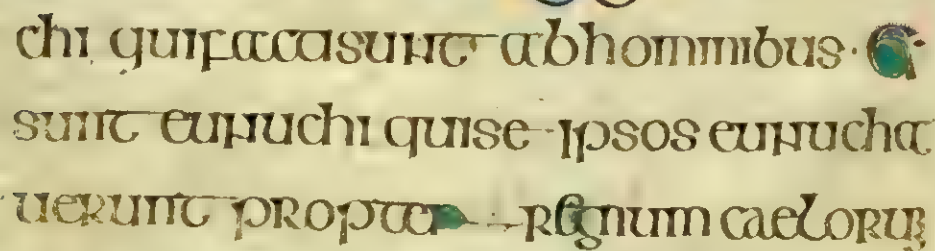 chi quifactisunt abhominibus· Et
sunt eunuchi quise ipsos eunucha
uerunt propter regnum caeloru